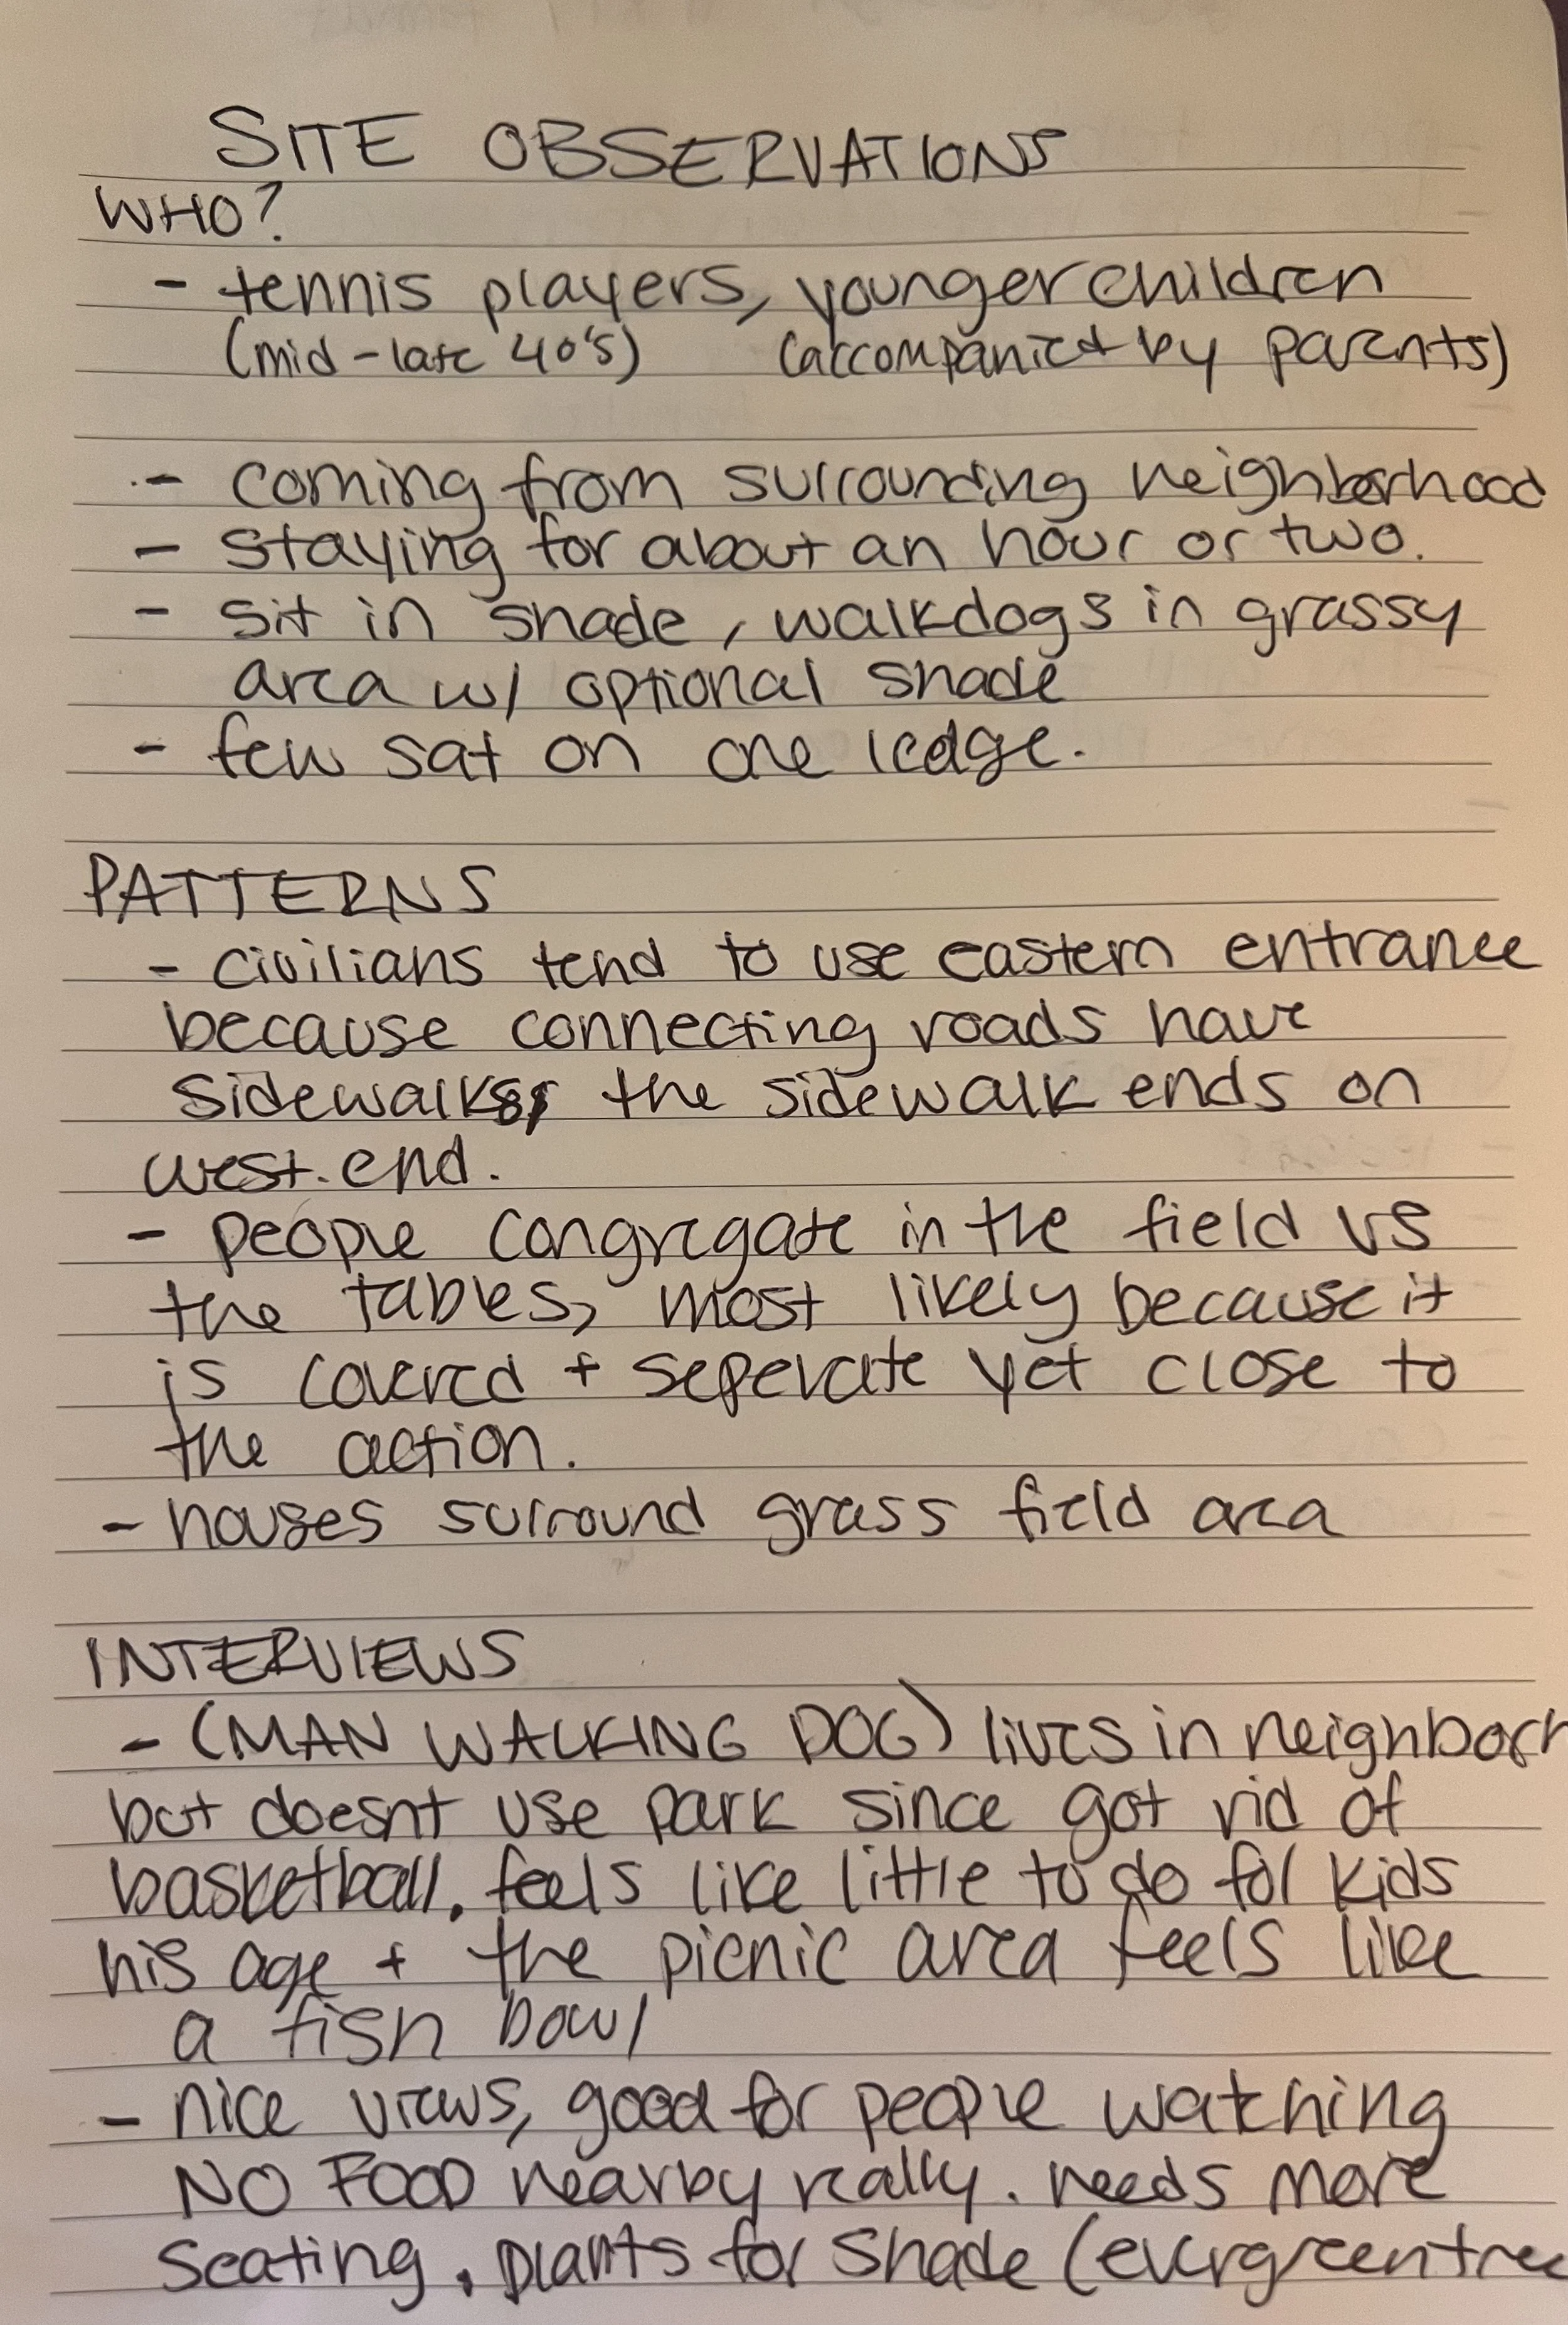 SITE OBSERVATIONS
WHO?
- tennis players, younger children
(mid-late 40's) (accompanied by parents)
- coming from surrounding neighborhood
- staying for about an hour or two.
- sit in shade, walk dogs in grassy
area w/ optional shade
- few sat on one ledge.
PATTERNS
- civilians tend to use eastern entrance
because connecting roads have
sidewalks, the sidewalk ends on
west. end.
- people congregate in the field vs
the tables, most likely because it
is covered + seperate yet close to
the action.
- houses surround grass field area
INTERVIEWS
- (MAN WALKING DOG) lives in neighborh
but doesnt use park since got rid of
basketball. feels like little to do for kids
his age + the picnic area feels like
a fish bowl
- nice views, good for people watching
NO FOOD nearby really. needs more
seating. plants for shade (evergreen tree